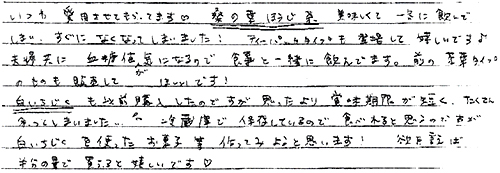 いつも 愛用させてもらってます♡ 桑の葉ほうじ茶 美味しくて 一気に 飲んで
しまい すぐに なくなって しまいました! ティーパックタイプも 登場して 嬉しいです♪
夫婦共に 血糖値が気になるので 食事と一緒に 飲んでます。前の 茶葉タイプ
のものも 販売して が ほしいです!
白いちじく も以前 購入したのですが 思ったより 賞味期限が 短く、たくさん
余ってしまいました… 冷蔵庫で 保存しているので 食べれると 思うのですが
白いちじく を使った お菓子 等 作ってみようと思います! 欲を言えば
半分の量で 買えると 嬉しいです♡